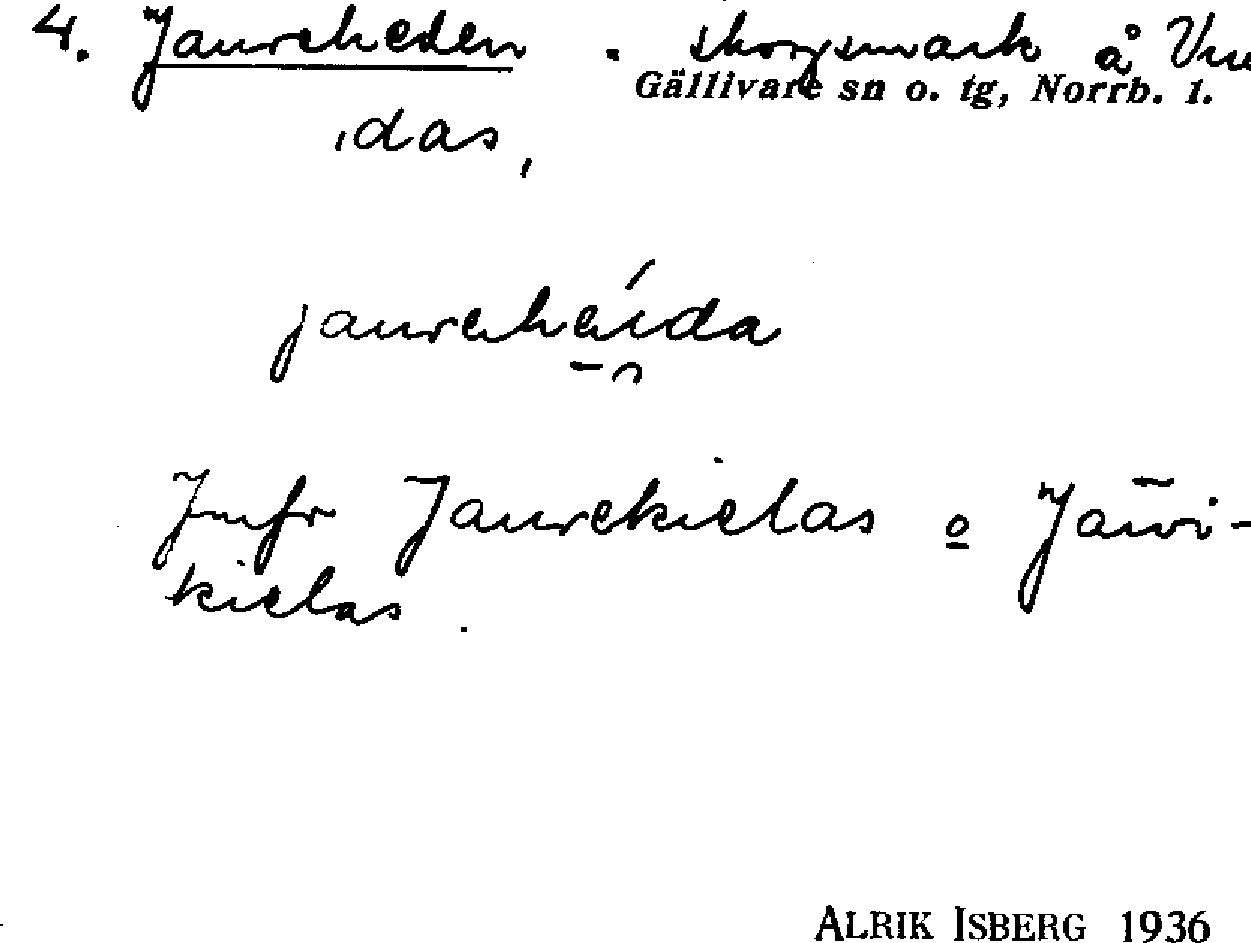 4. Jaureheden . skogsmark å
Gällivare sn o. tg, Norrb. l.
idas,
jaurehéida
Jmfr Jaurekielas o Järvi-
kielas.
ALRIK ISBERG 1936